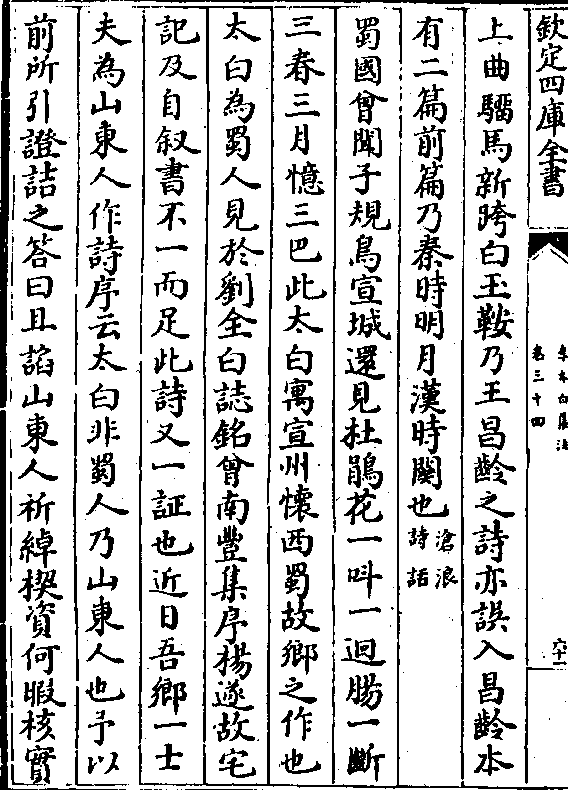 欽定四庫全書
李太白集注
卷三十四
上曲驑馬新跨白玉鞍乃王昌齡之詩亦誤入昌齡本
有二篇前篇乃秦時明月漢時關也滄浪詩話
蜀國曾聞子規鳥宣城還見杜鵑花一呌一迴腸一斷
三春三月憶三巴此太白寓宣州懷西蜀故鄉之作也
太白為蜀人見於劉全白誌銘曾南豐集序楊遂故宅
記及自叙書不一而足此詩又一証也近日吾鄉一士
夫為山東人作詩序云太白非蜀人乃山東人也予以
前所引證詰之答曰且諂山東人祈綽楔資何暇核實